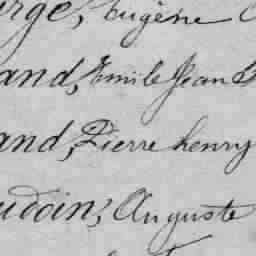 rge, Eugène
and, Emile Jean
and, Pierre henry
udoin, Auguste